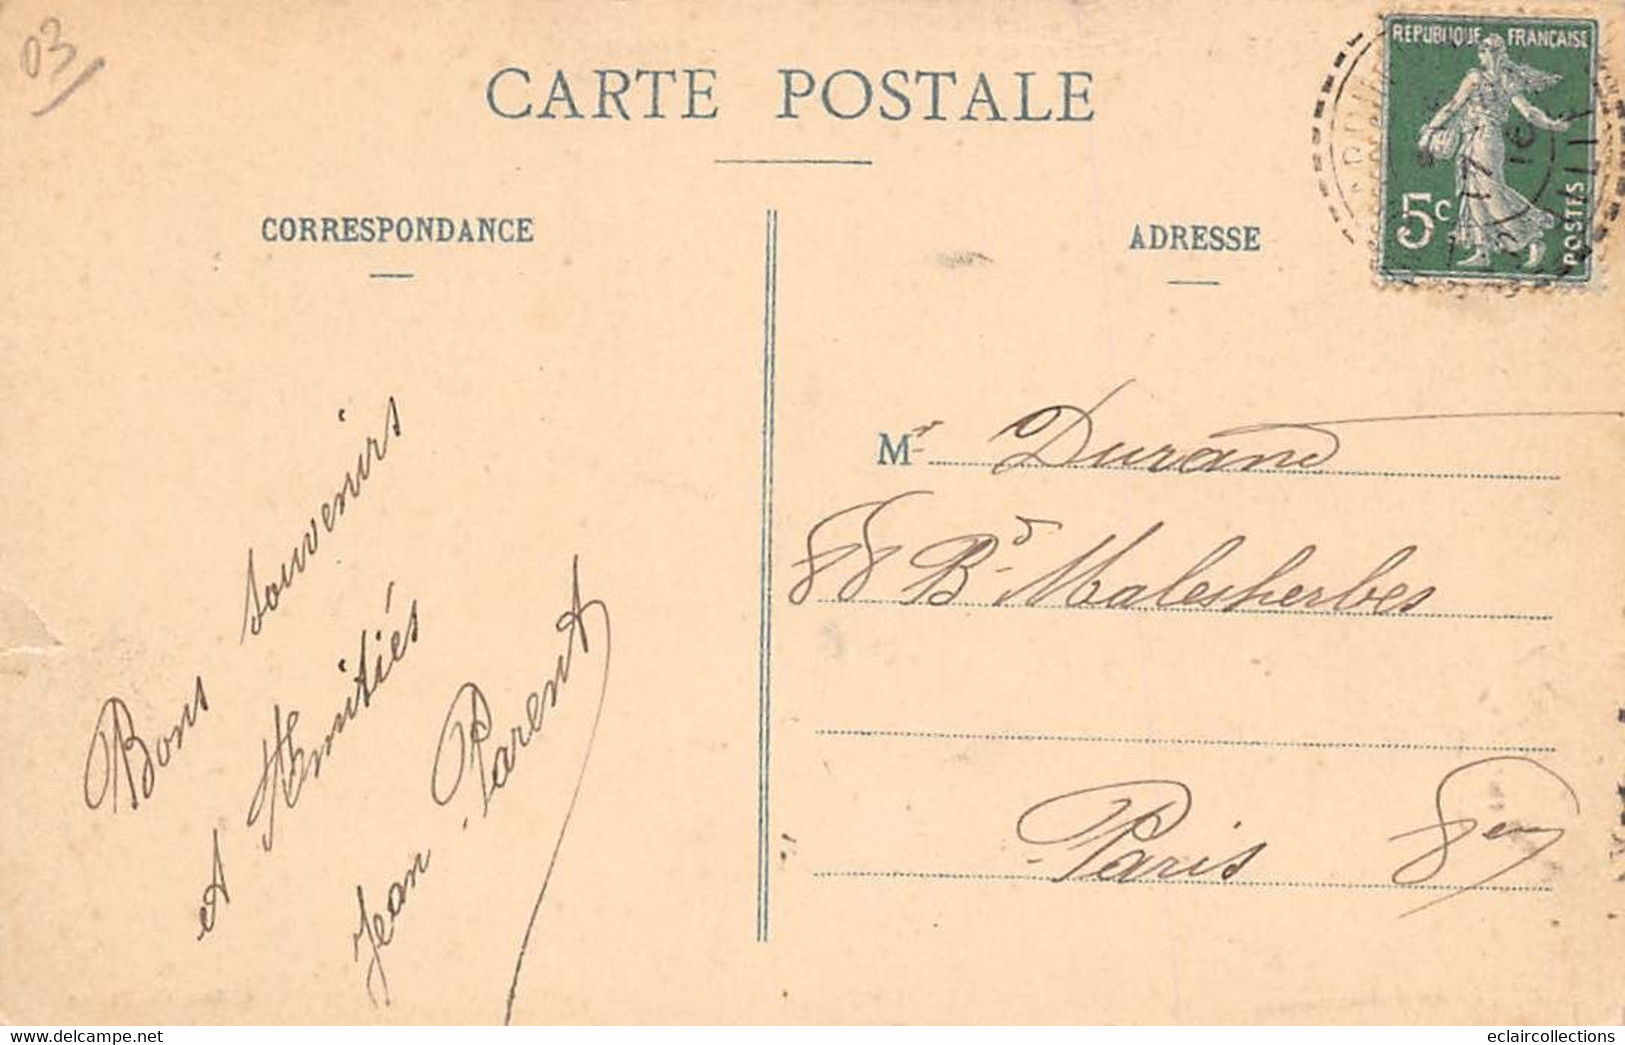 03
CARTE POSTALE
REPUBLIQUE FRANÇAISE
5c
POSTES
17
16
CORRESPONDANCE
ADRESSE
Bons souvenirs
et Amitiés
Jean Parent
Mr Durand
88 Bd Malesherbes
Paris 8em
delcampe.net
eclaircollections